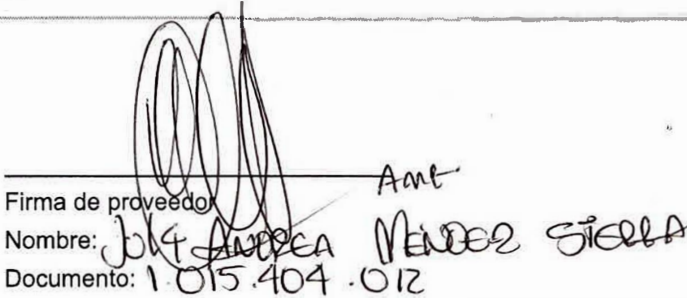 AME
Firma de proveedor
Nombre: July ANDREA MENDEZ SIERRA
Documento: 1.015.404.012